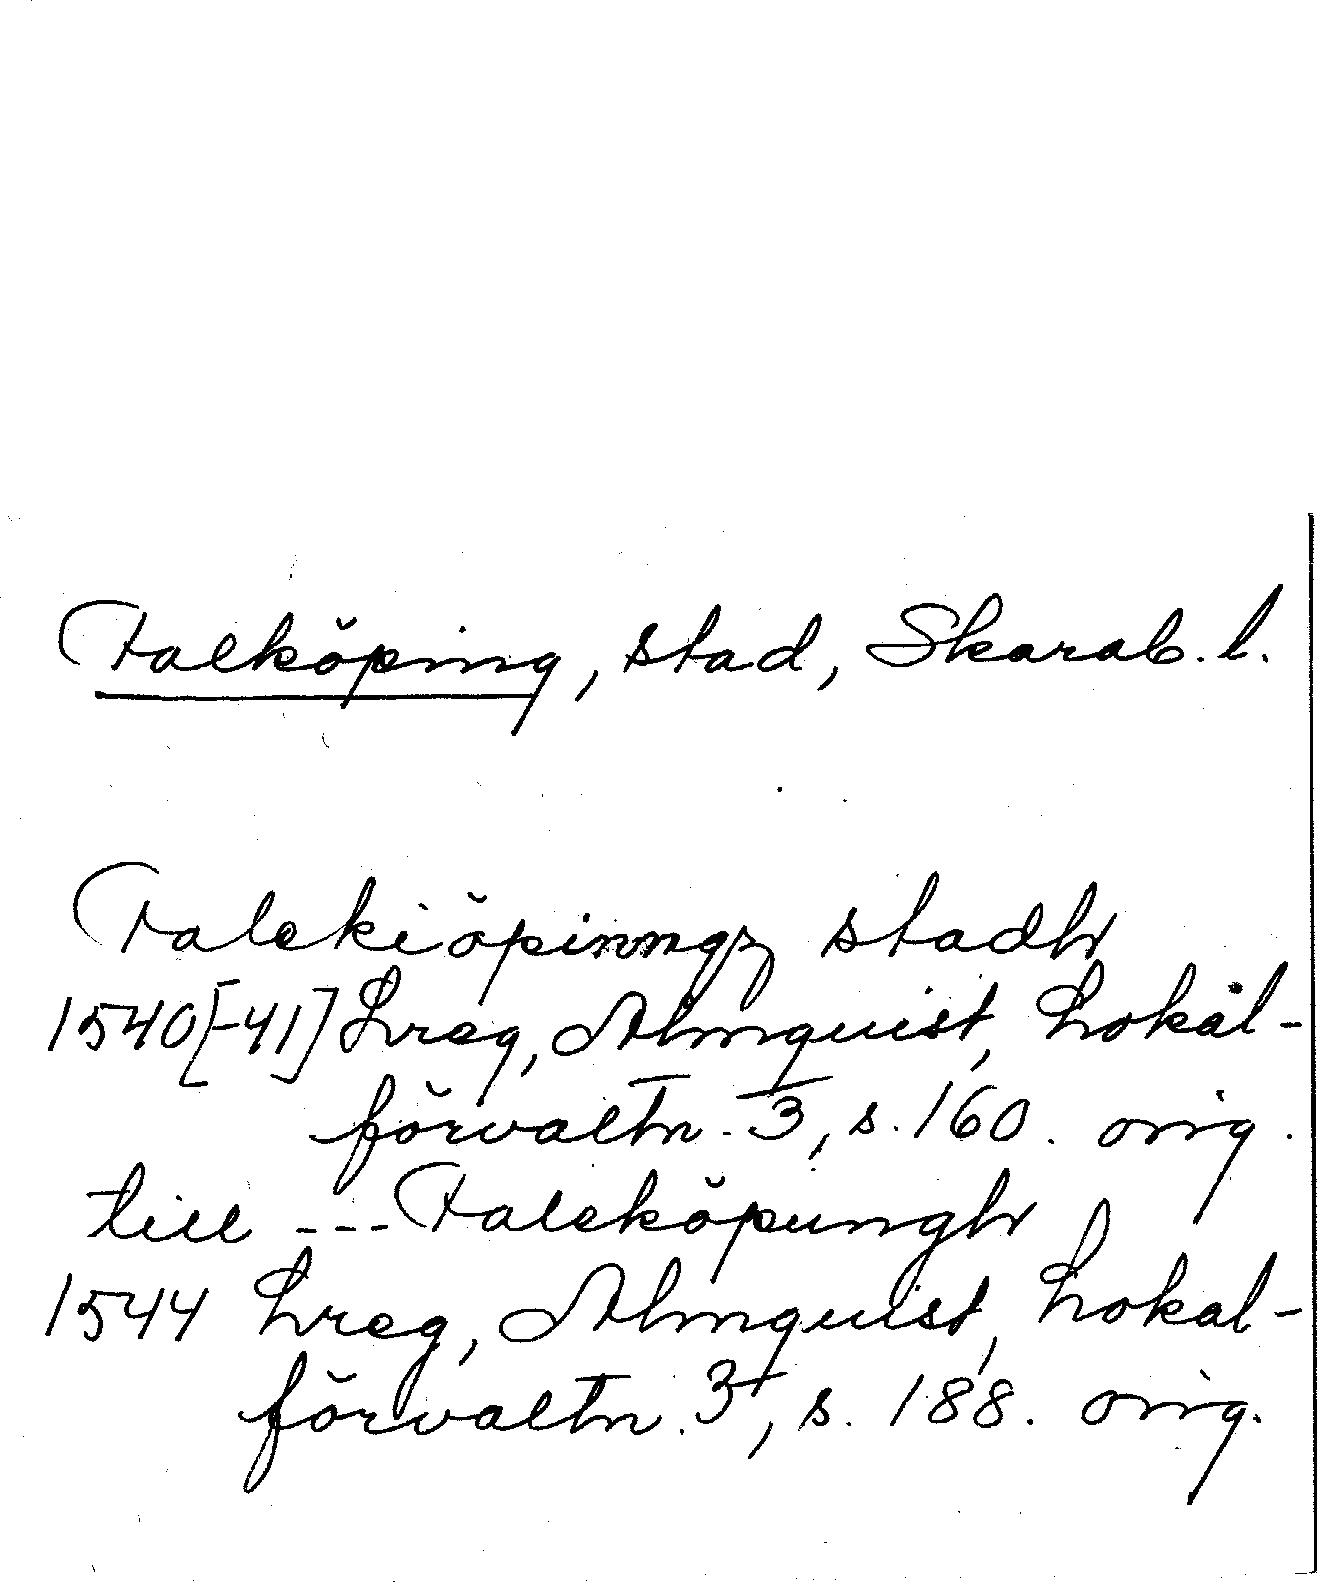 Falköping, stad, Skarab. l.
Falekiöpinngz stadh
1540[-41] Lreg, Almquist, Lokal-
förvaltn. 3, s. 160. orig.
till --- Faleköpungh
1544 Lreg, Almquist, Lokal-
förvaltn. 3, s. 188. orig.